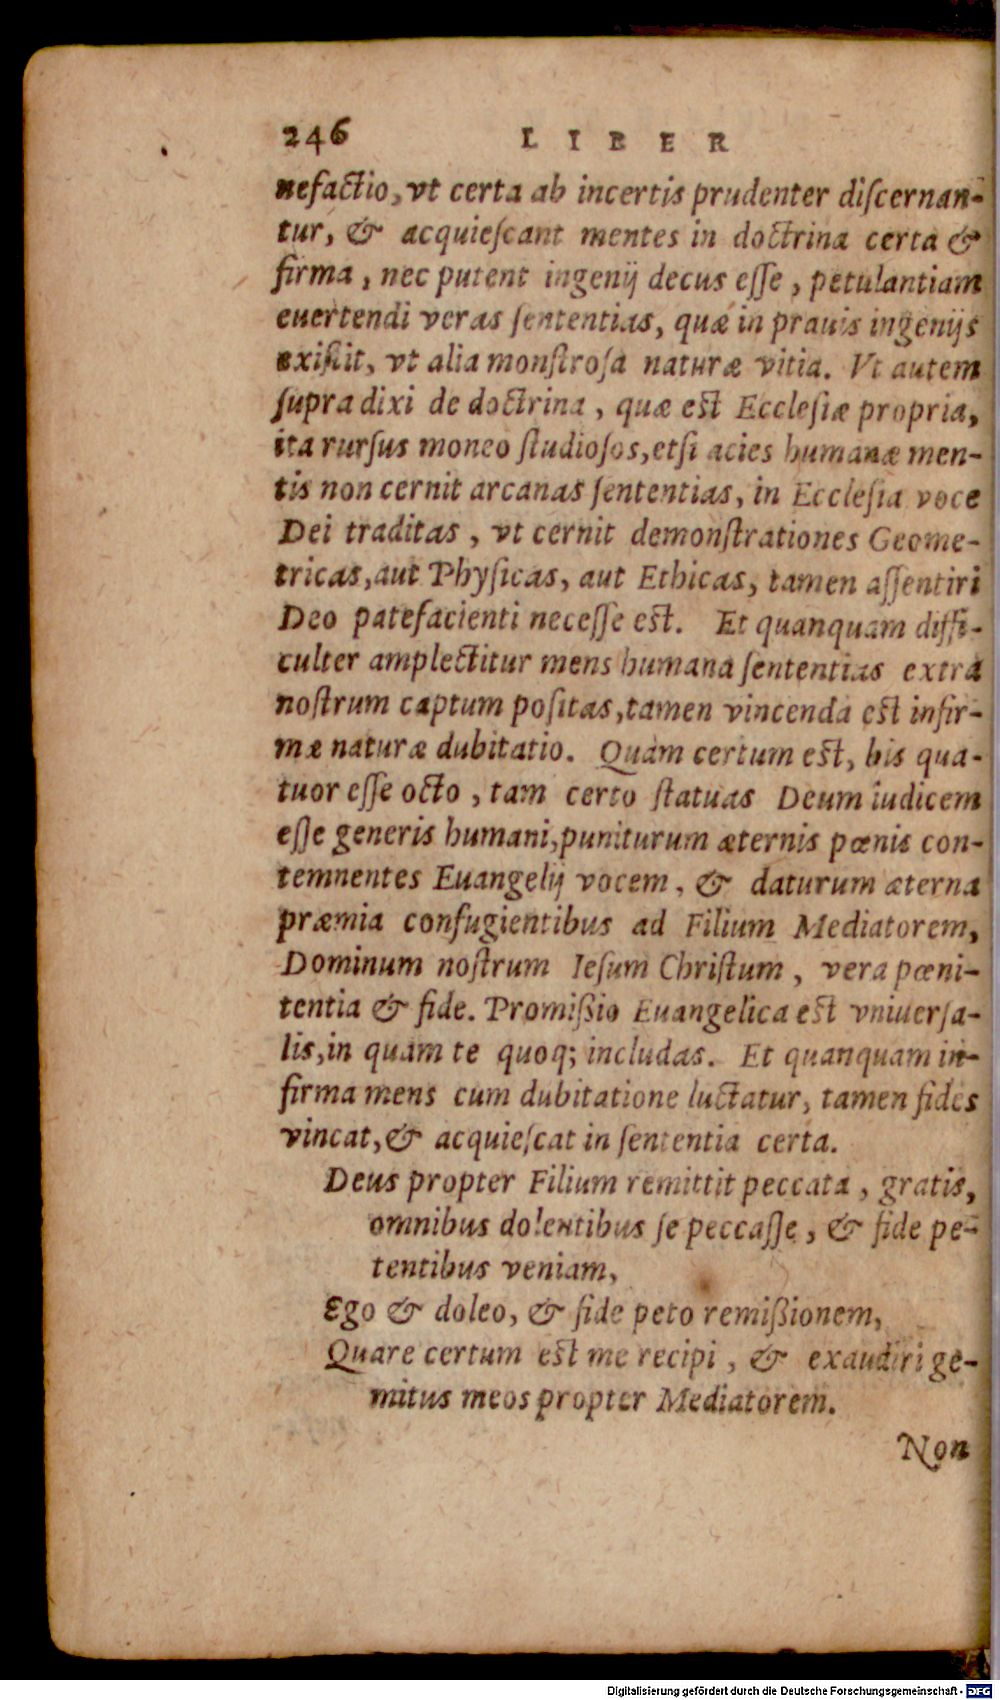 246 LIBER
nefactio, vt certa ab incertis prudenter diſcernan-
tur, & acquieſcant mentes in doctrina certa &
firma, nec putent ingenij decus eſſe, petulantiam
euertendi veras ſententias, quæ in prauis ingenijs
exiſtit, vt alia monſtroſa naturæ vitia. Vt autem
ſupra dixi de doctrina, quæ est Eccleſiæ propria,
ita rurſus moneo ſtudioſos, etſi acies humanæ men-
tis non cernit arcanas ſententias, in Eccleſia voce
Dei traditas, vt cernit demonſtrationes Geome-
tricas, aut Phyſicas, aut Ethicas, tamen aſſentiri
Deo patefacienti neceſſe est. Et quanquam diffi-
culter amplectitur mens humana ſententias extra
noſtrum captum poſitas, tamen vincenda est infir-
mæ naturæ dubitatio. Quàm certum est, bis qua-
tuor eſſe octo, tam certo ſtatuas Deum iudicem
eſſe generis humani, puniturum æternis pœnis con-
temnentes Euangelij vocem, & daturum æterna
præmia confugientibus ad Filium Mediatorem,
Dominum noſtrum Ieſum Chriſtum, vera pœni-
tentia & fide. Promiſsio Euangelica est vniuerſa-
lis, in quam te quoq; includas. Et quanquam in-
firma mens cum dubitatione luctatur, tamen fides
vincat, & acquieſcat in ſententia certa.
Deus propter Filium remittit peccata, gratis,
omnibus dolentibus ſe peccaſſe, & fide pe-
tentibus veniam,
Ego & doleo, & fide peto remiſsionem,
Quare certum est me recipi, & exaudiri ge-
mitus meos propter Mediatorem.
Non
Digitalisierung gefördert durch die Deutsche Forschungsgemeinschaft - DFG